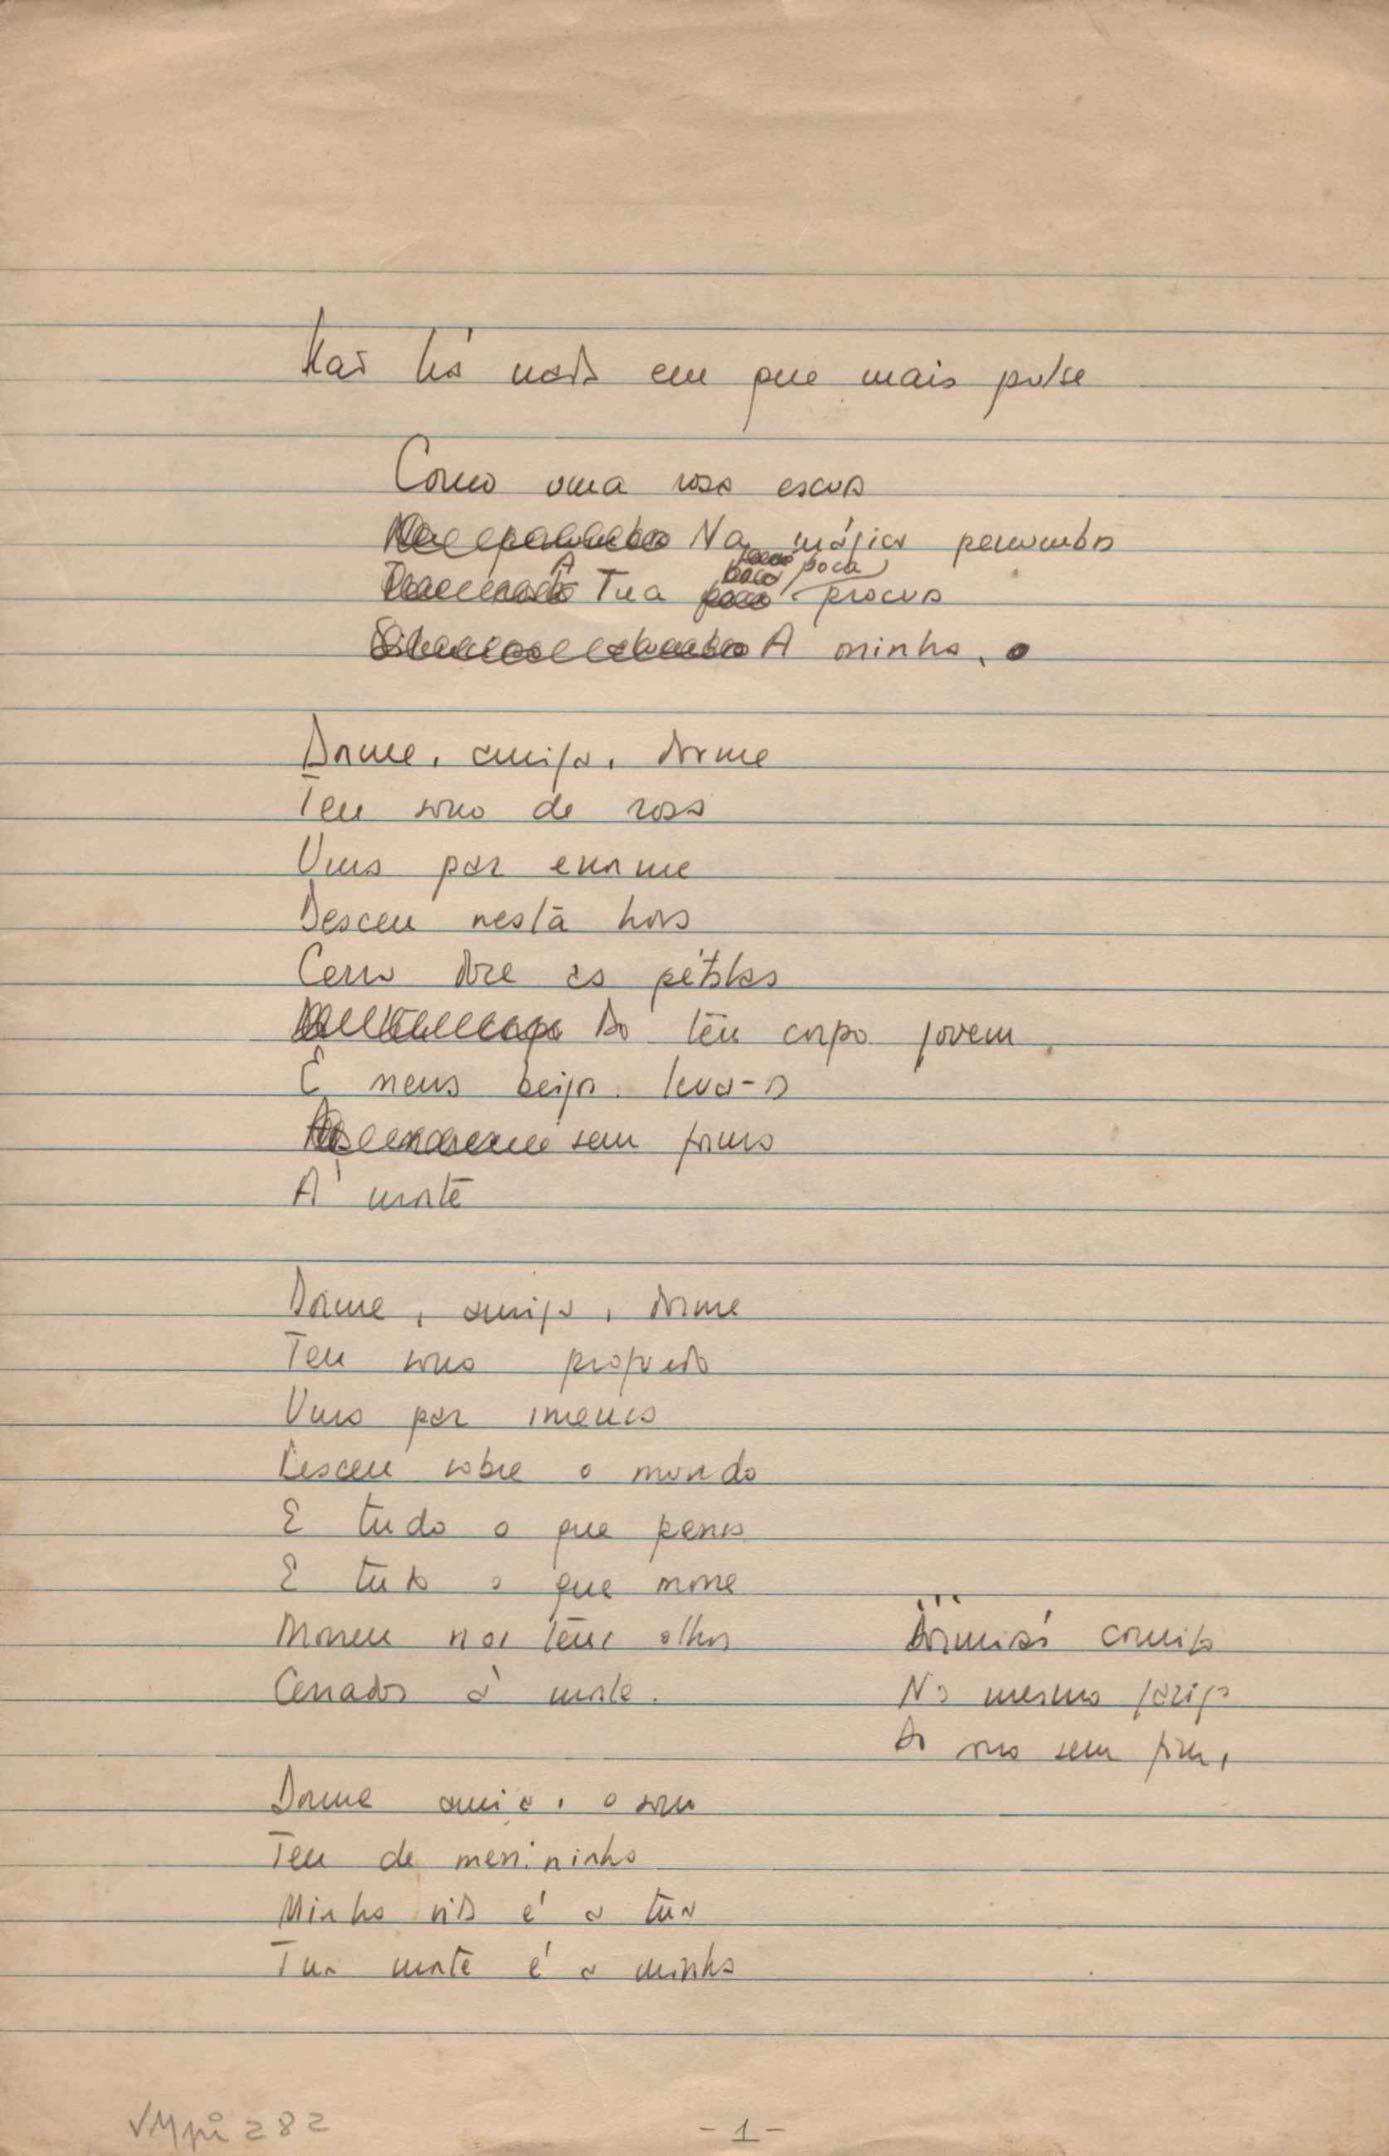 Não há nada em que mais pulse
Como uma rosa escura
Na mágica penumbra
A Tua boca procura
A minha,
Dorme, amiga, dorme
Teu sono de rosa
Uma paz enorme
Desceu nesta hora
Cerra as pétalas
Do teu corpo jovem
E meus beijos leva-os
sem forma
À morte
Dorme, amiga, dorme
Teu sono profundo
Uma paz imensa
Desceu sobre o mundo
E tudo o que pensa
E tudo o que move
Morreu nos teus olhos
Cerrados à morte.
...
Dormirás comigo
No mesmo jazigo
Do sono sem fim,
Dorme amiga, o sono
Teu de menininha
Minha vida é a tua
Tua morte é a minha
VMpi 282
- 1 -